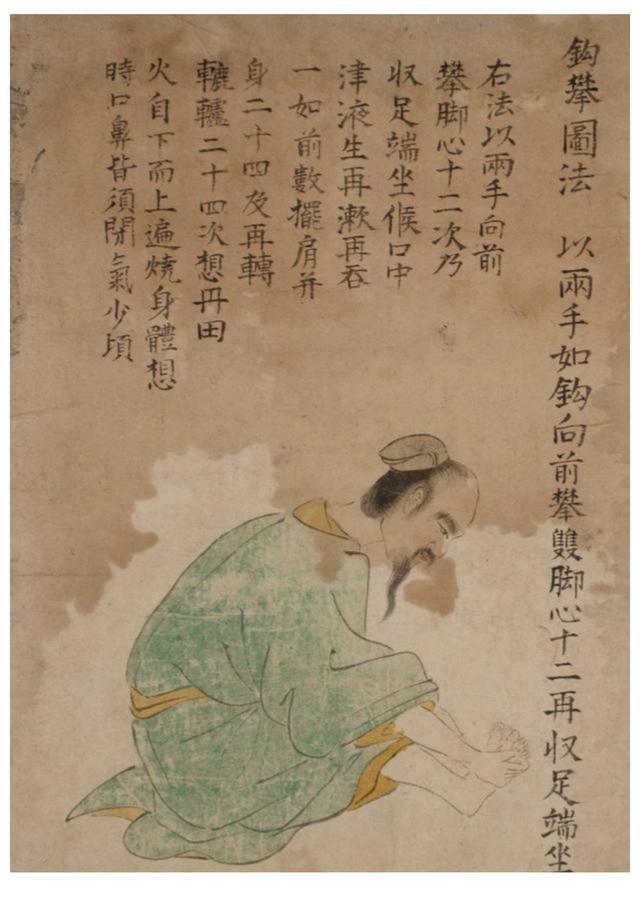 鈎攀圖法 以兩手如鈎向前攀雙脚心十二再収足端坐
右法以兩手向前
攀脚心十二次乃
収足端坐候口中
津液生再漱再吞
一如前數擺肩并
身二十四及再轉
轆轤二十四次想丹田
火自下而上遍燒身體想
時口鼻皆須閉氣少頃